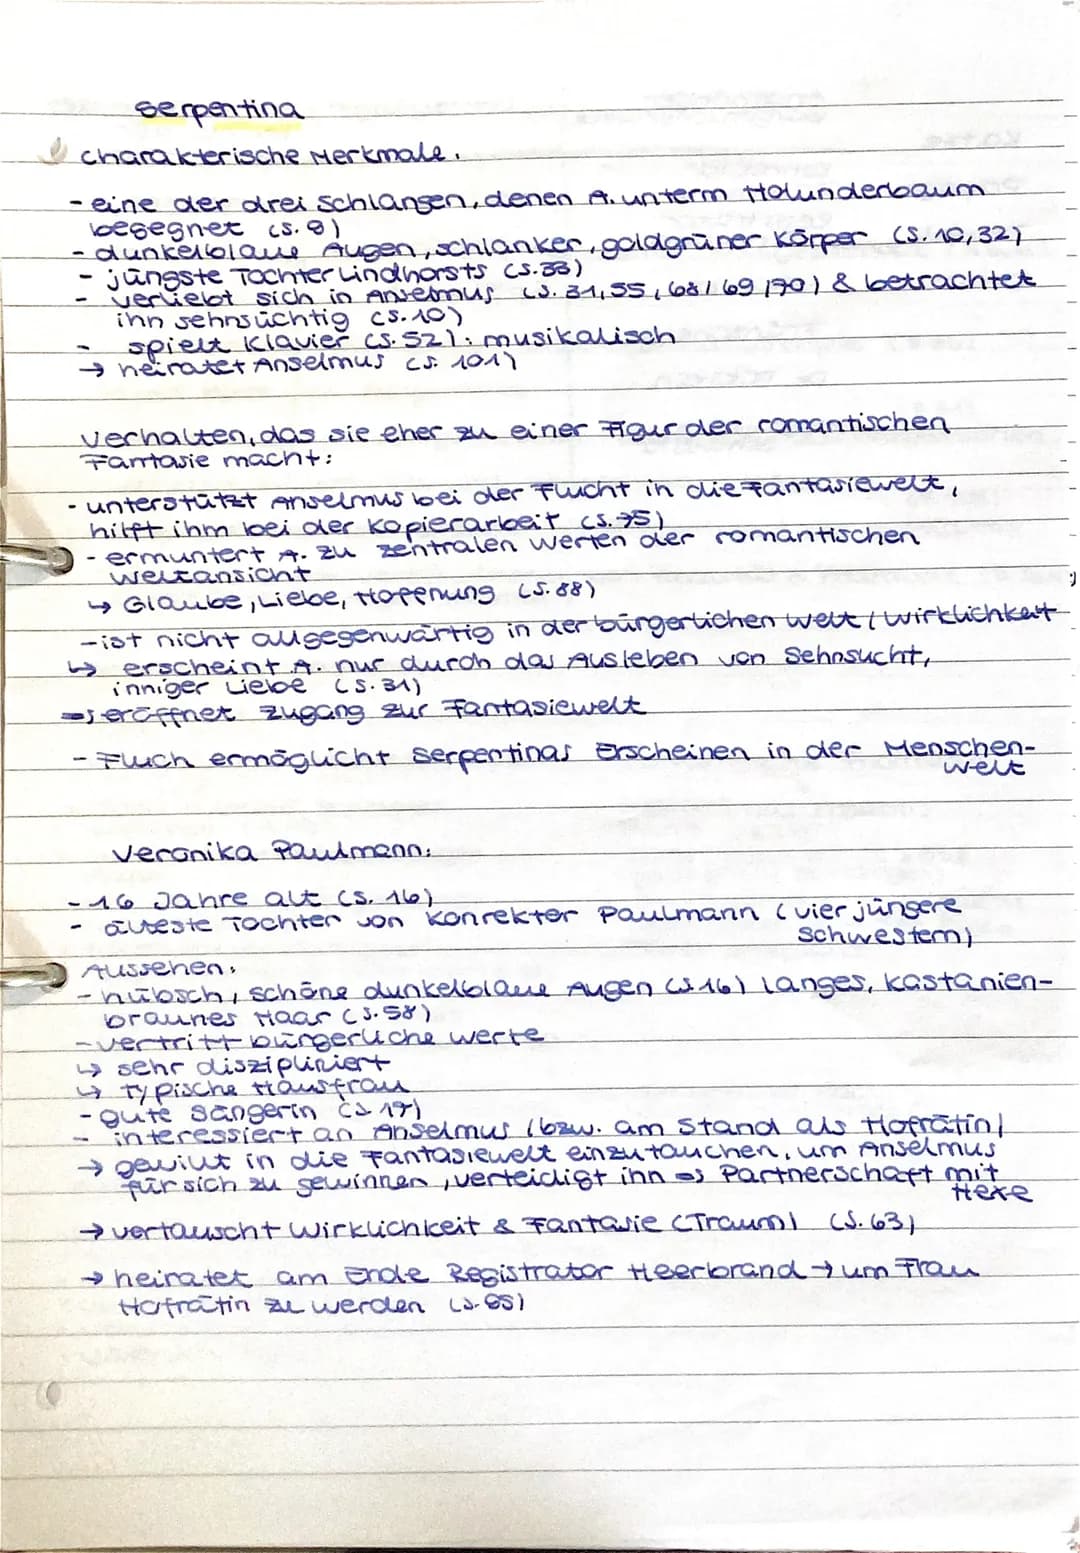 Serpentina
Charakterische Merkmale:
- eine der drei Schlangen, denen A. unterm Holunderbaum
begegnet (S. 9)
- dunkelblaue Augen, schlanker, goldgrüner Körper (S. 10, 32)
- jüngste Tochter Lindhorsts (S. 33)
- verliebt sich in Anselmus (S. 31, 55, 68/69/70) & betrachtet
ihn sehnsüchtig (S. 10)
- spielt Klavier (S. 52): musikalisch
→ heiratet Anselmus (S. 101)
Verhalten, das sie eher zu einer Figur der romantischen
Fantasie macht:
- unterstützt Anselmus bei der Flucht in die Fantasiewelt,
hilft ihm bei der Kopierarbeit (S. 75)
- ermuntert A. zu zentralen Werten der romantischen
Weltansicht
↳ Glaube, Liebe, Hoffnung (S. 88)
- ist nicht allgegenwärtig in der bürgerlichen Welt / Wirklichkeit
↳ erscheint A. nur durch das Ausleben von Sehnsucht,
inniger Liebe (S. 31)
⇒ eröffnet Zugang zur Fantasiewelt
- Fluch ermöglicht Serpentinas Erscheinen in der Menschen-
welt
Veronika Paulmann:
- 16 Jahre alt (S. 16)
- älteste Tochter von Konrektor Paulmann (vier jüngere
Schwestern)
Aussehen:
- hübsch, schöne dunkelblaue Augen (S. 16) langes, kastanien-
braunes Haar (S. 58)
- vertritt bürgerliche Werte
↳ sehr diszipliniert
↳ typische Hausfrau
- gute Sängerin (S. 17)
- interessiert an Anselmus (bzw. am Stand als Hofrätin)
→ gewillt in die Fantasiewelt einzutauchen, um Anselmus
für sich zu gewinnen, verteidigt ihn ⇒ Partnerschaft mit
Hexe
→ vertauscht Wirklichkeit & Fantasie (Traum) (S. 63)
→ heiratet am Ende Registrator Heerbrand → um Frau
Hofrätin zu werden